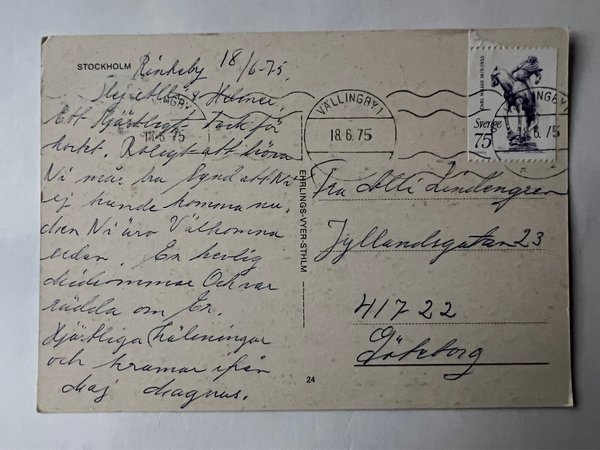 STOCKHOLM
Rinkeby 18/6-75.
Hej & Helmer.
Ett Hjärtligt Tack för
kortet. Roligt att höra
Ni mår bra Synd att Ni
ej kunde komma nu,
Men Ni äro Välkomna
sedan. En hevlig
Midsommar Och var
rädda om Er.
Hjärtliga Hälsningar
och kramar ifrån
Maj Magnus.
EHRLINGS-VYER-STHLM
24
VÄLLINGBY 1
18.6.75
INGBY
18.6.75
Sverige
75
INGBY 1
6.75
Fru Lindengren
Jyllandsgatan 23
417 22
Göteborg